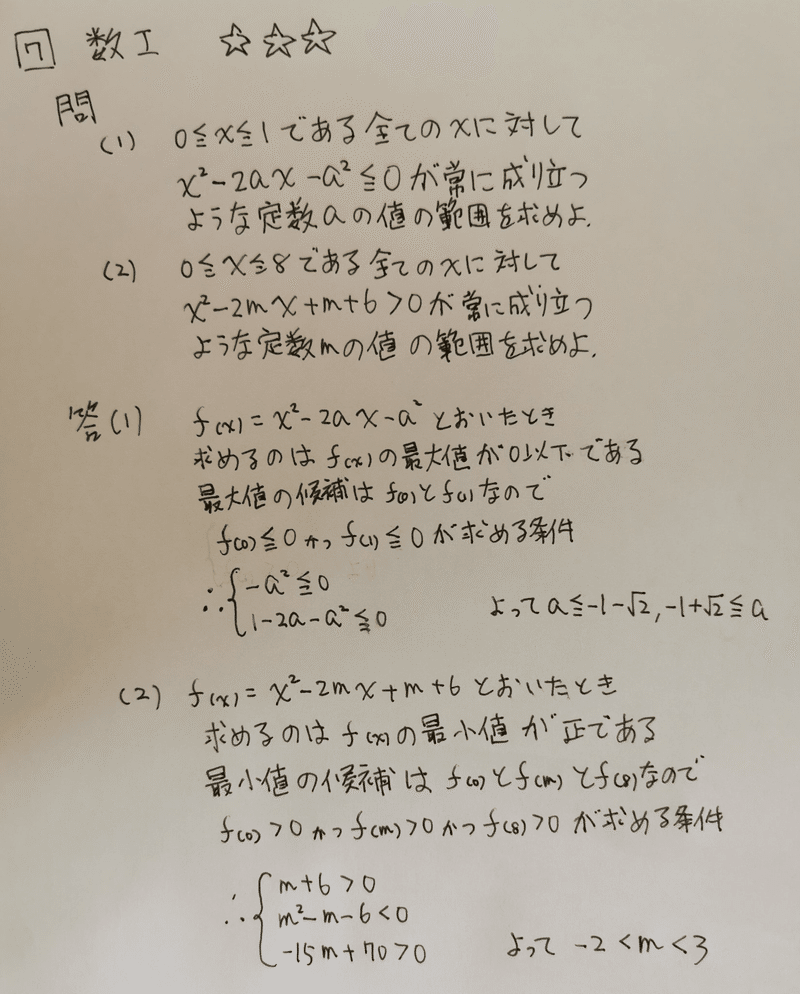 7 数I ☆☆☆
問
(1) 0≦x≦1である全てのxに対して
x²-2ax-a²≦0が常に成り立つ
ような定数aの値の範囲を求めよ.
(2) 0≦x≦8である全てのxに対して
x²-2mx+m+6>0が常に成り立つ
ような定数mの値の範囲を求めよ.
答(1) f(x)=x²-2ax-a²とおいたとき
求めるのはf(x)の最大値が0以下である
最大値の候補はf(0)とf(1)なので
f(0)≦0かつf(1)≦0が求める条件
∴{-a²≦0
1-2a-a²≦0 よってa≦-1-√2,-1+√2≦a
(2) f(x)=x²-2mx+m+6とおいたとき
求めるのはf(x)の最小値が正である
最小値の候補はf(0)とf(m)とf(8)なので
f(0)>0かつf(m)>0かつf(8)>0が求める条件
∴{m+6>0
m²-m-6<0
-15m+70>0 よって -2<m<3